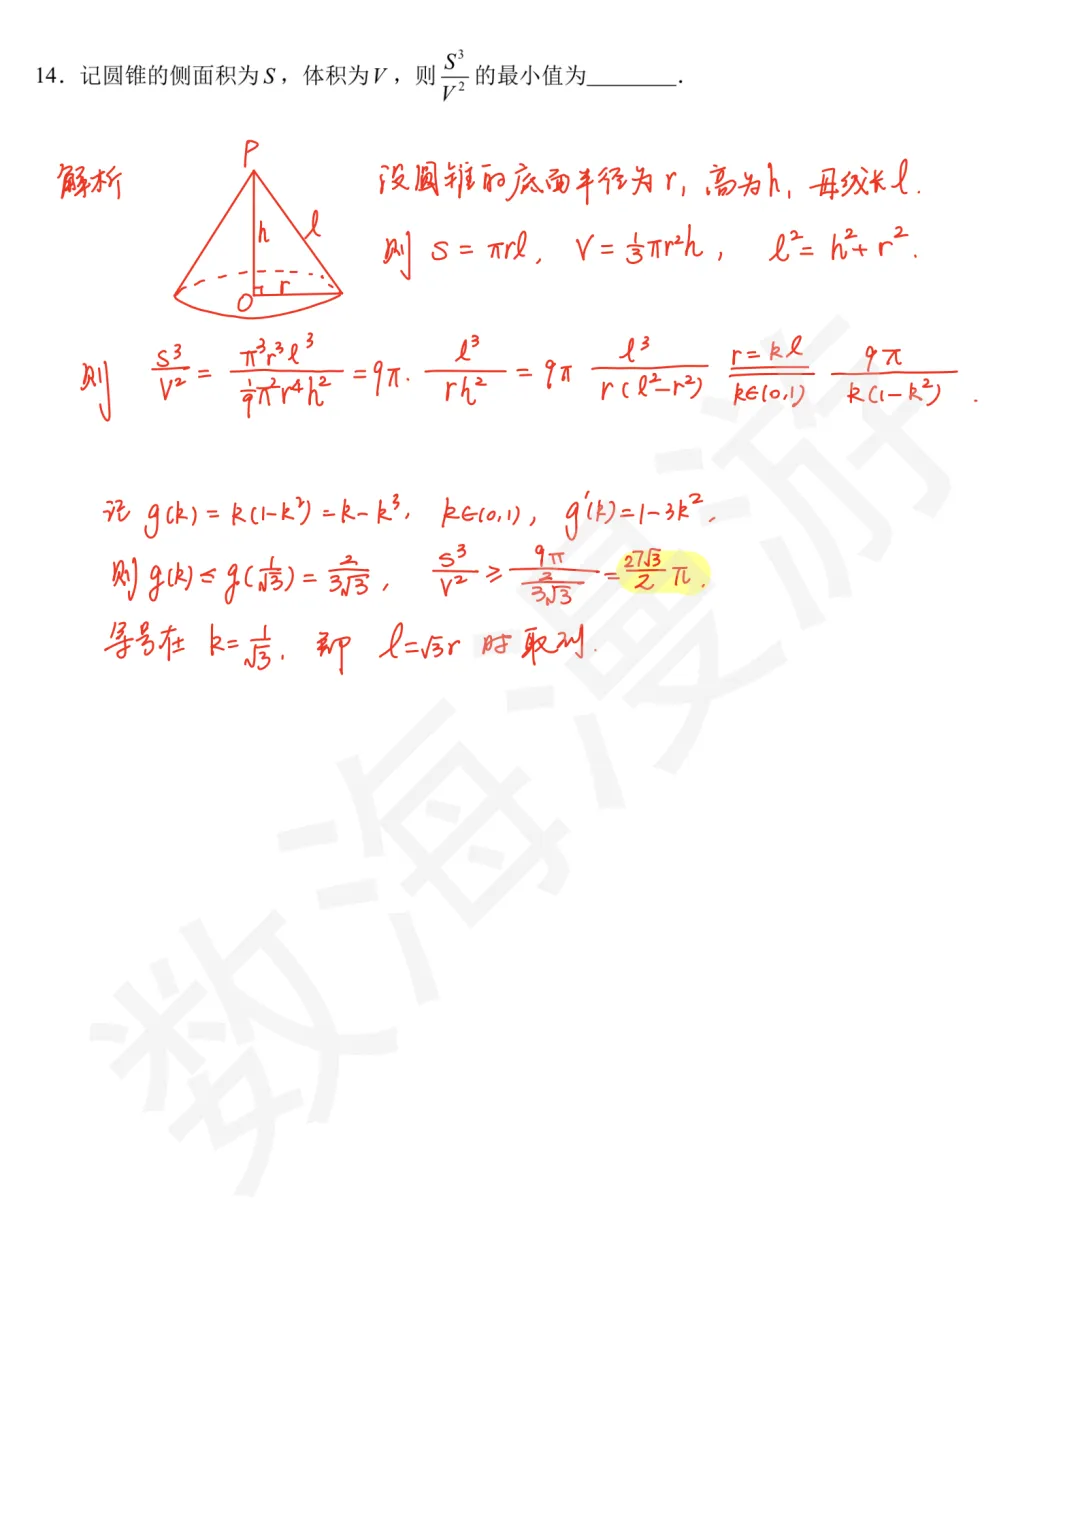 14. 记圆锥的侧面积为 S，体积为 V，则 S³/V² 的最小值为________．
解析
P
h
l
O
r
设圆锥的底面半径为 r, 高为 h, 母线长 l.
则 S = πrl, V = 1/3 πr²h, l² = h² + r².
则 S³/V² = π³r³l³ / (1/9 π²r⁴h²) = 9π · l³/(rh²) = 9π l³/(r(l²-r²)) r=kl k∈(0,1) 9π/(k(1-k²)).
记 g(k) = k(1-k²) = k-k³, k∈(0,1), g'(k)=1-3k².
则 g(k) ≤ g(1/√3) = 2/(3√3), S³/V² ≥ 9π/(2/(3√3)) = 27√3/2 π.
等号在 k=1/√3, 即 l=√3r 时取到.
数海漫游